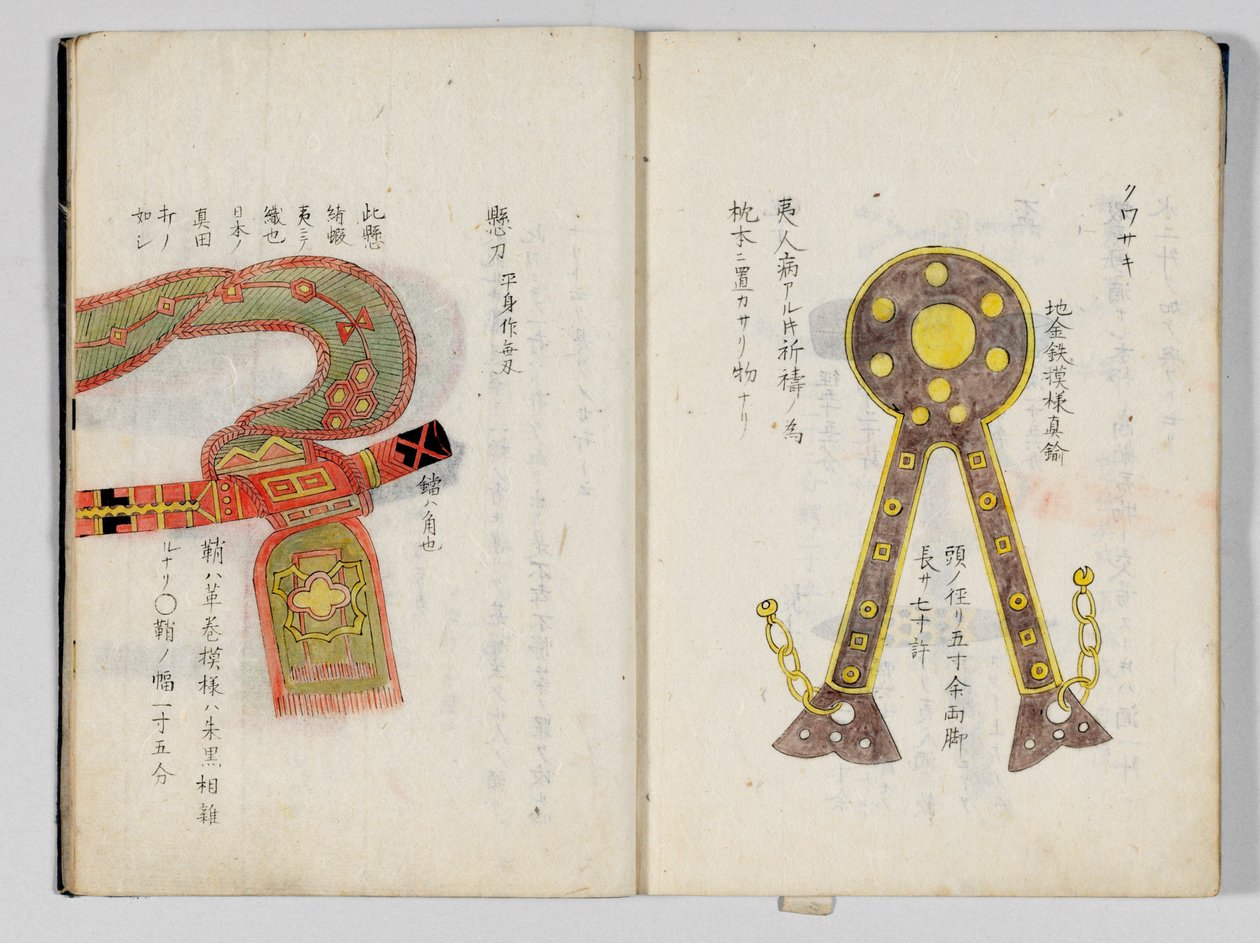 ノワサキ
地金鉄摸様真鍮
頭ノ径リ五寸余両脚
長サ七寸許
夷人病アル片祈禱ノ為
枕本ニ置カサリ物ナリ
懸刀 平身作無刃
此懸
緒蝦
夷ニテ
織也
日本ノ
真田
打ノ
如シ
鐺ハ角也
鞘ハ革巻摸様ハ朱黒相雜
ルナリ〇鞘ノ幅一寸五分